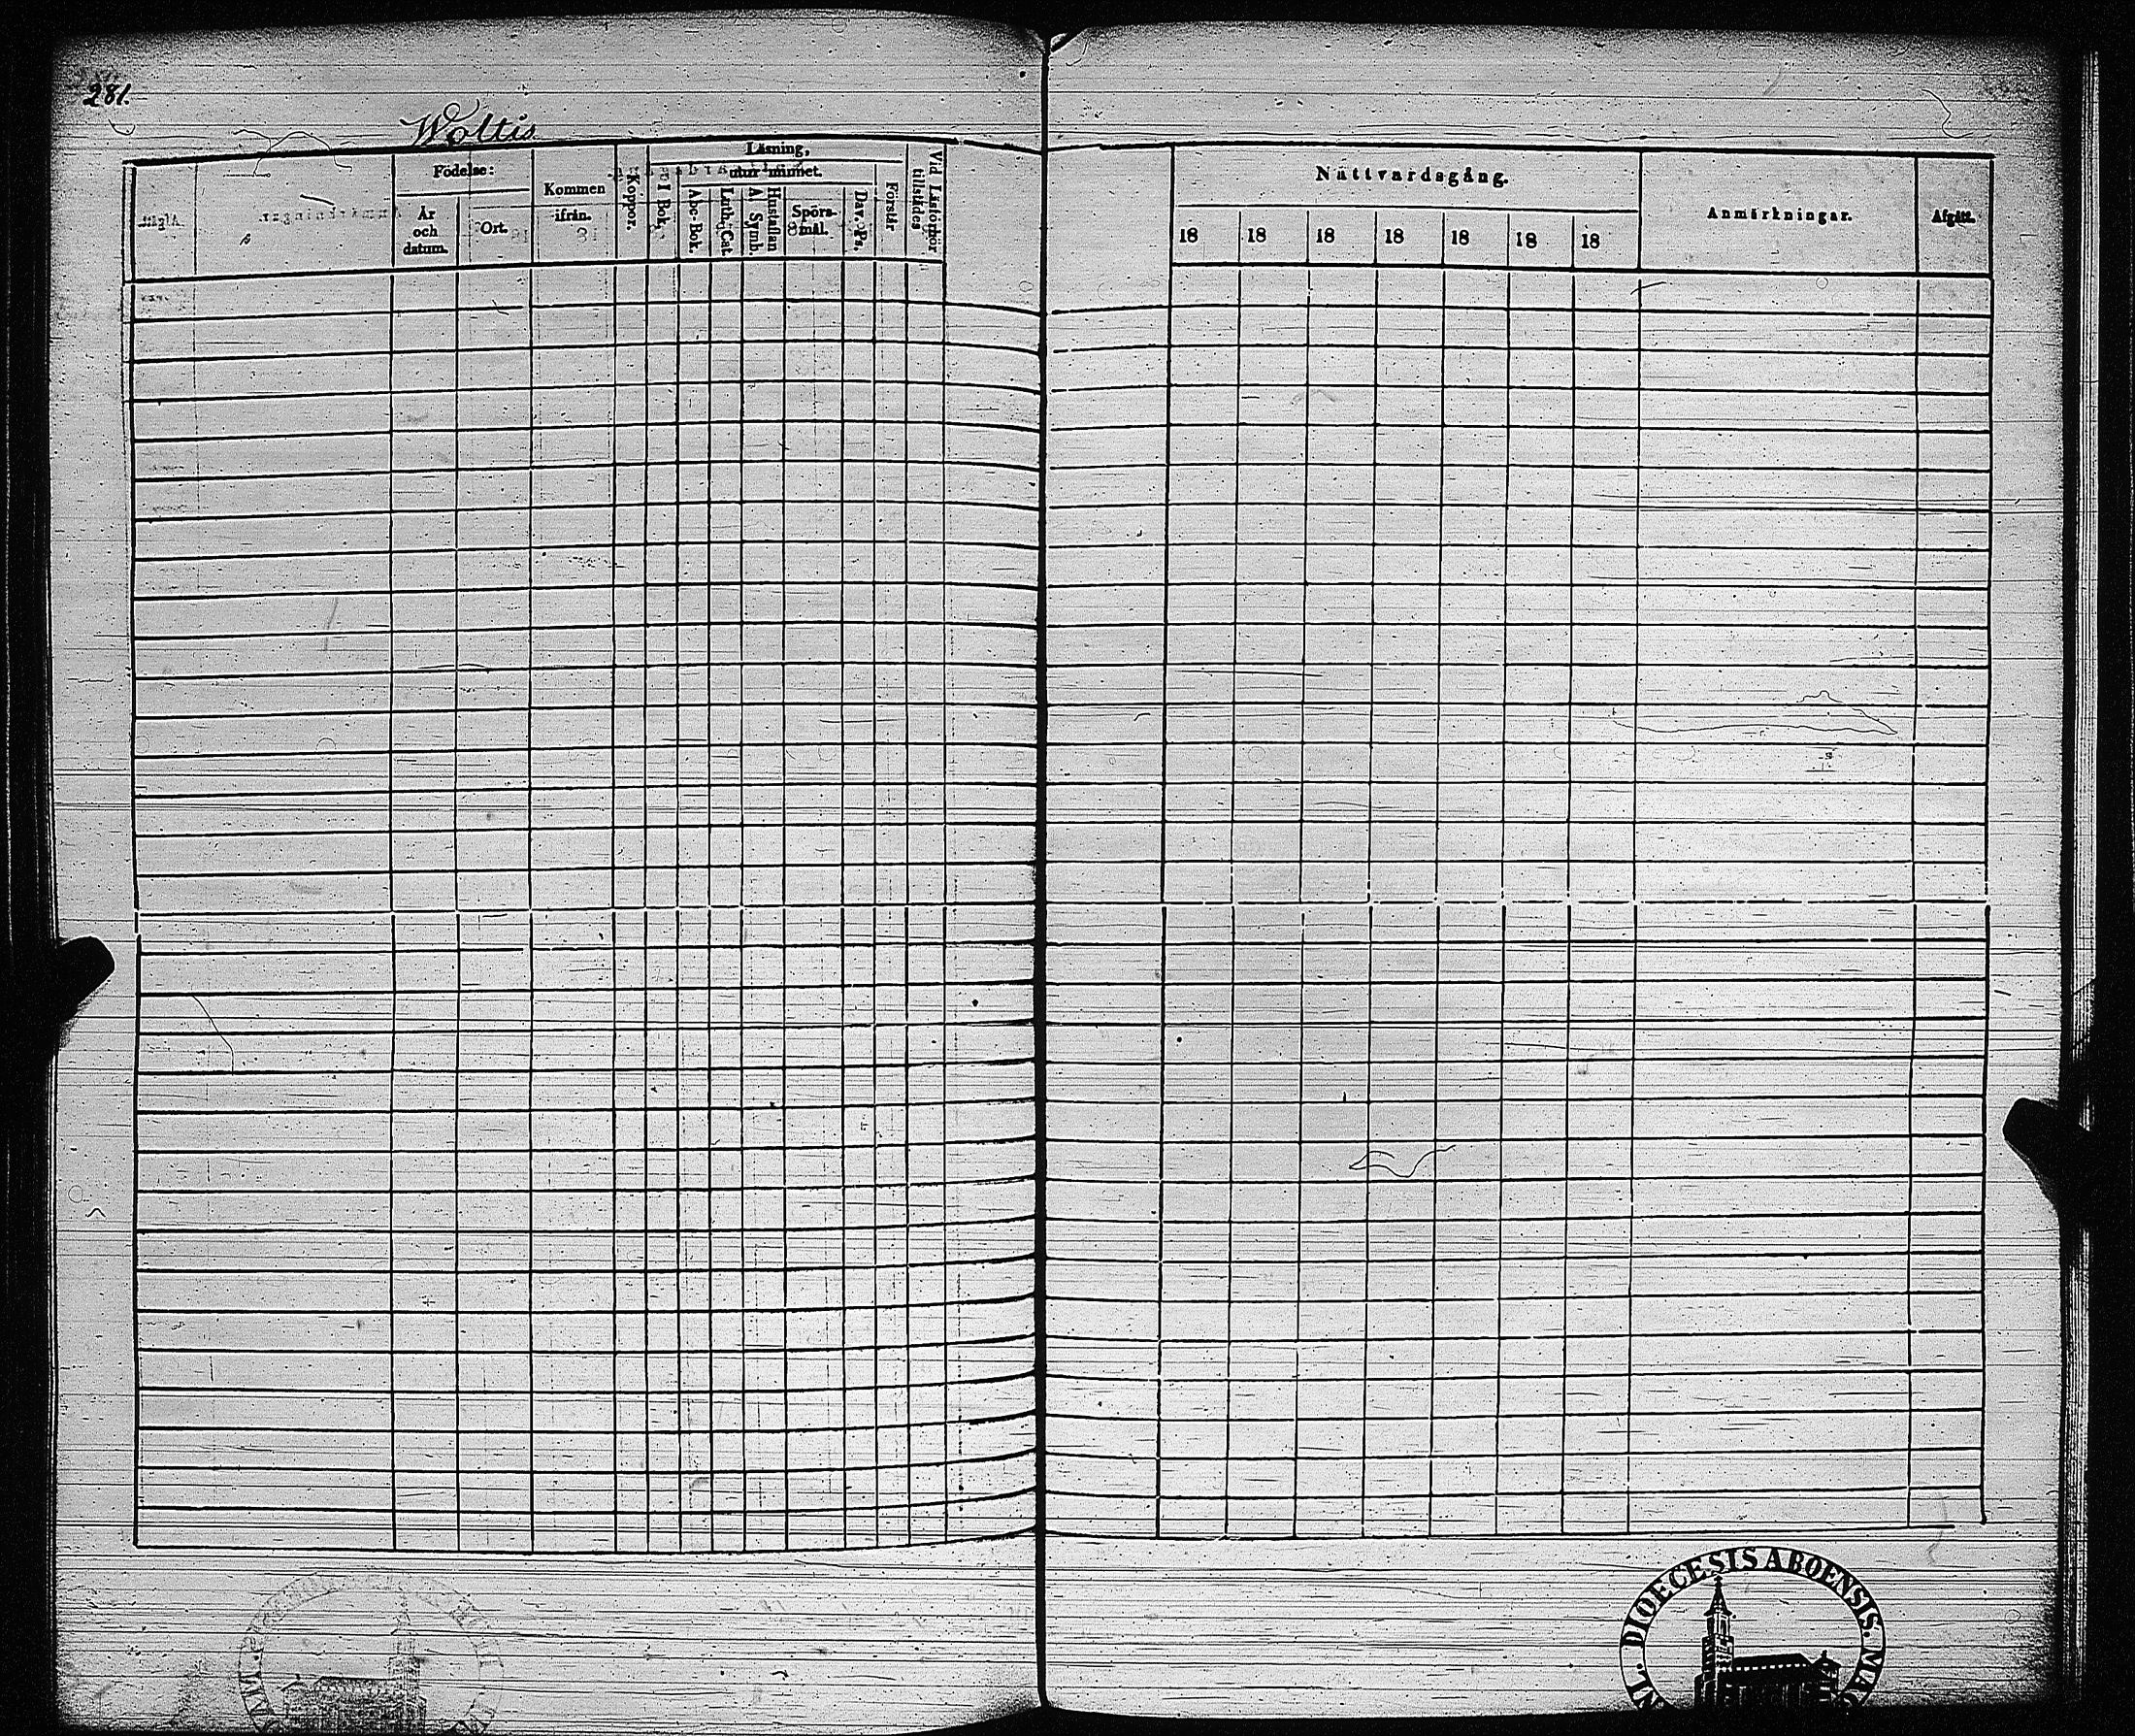 281.
Woltis
Födelse:
År
och
datum.
Ort.
Kommen
ifrån.
Koppor.
Läsning,
I Bok.
utur minnet.
Abc-Bok.
Luth. Cat.
A. Symb.
Hustaflan
Spörs-
mål.
Dav. Ps.
Förstår
Vid Läsförhör
tillstädes
Nattvardsgång.
18 18 18 18 18 18 18
Anmärkningar.
Afgått.
DIOECESIS ABOENSIS.